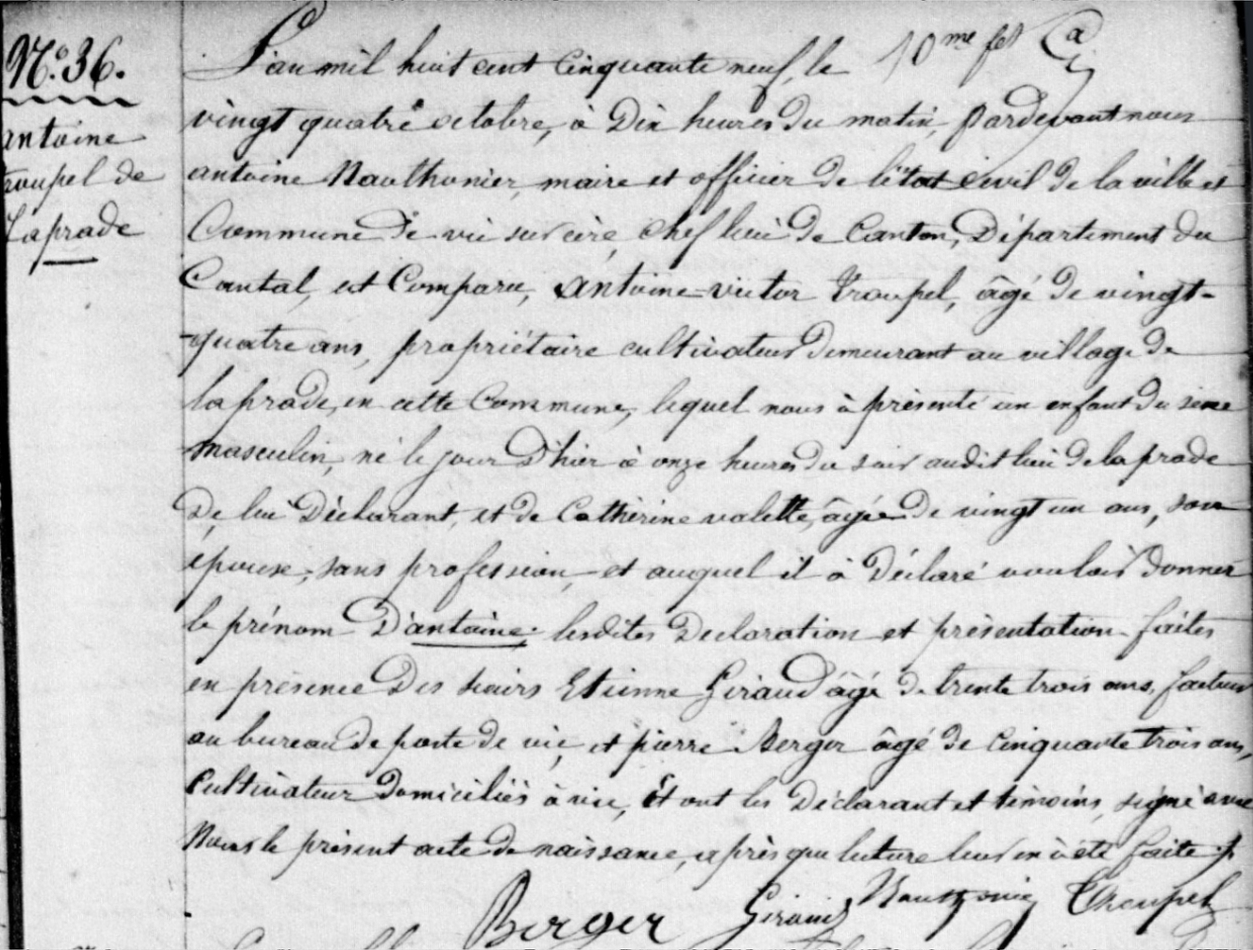 N.° 36.
antoine
troupel de
Laprade
10me fet Ca
L'an mil huit cent cinquante neuf, le
vingt quatre octobre, à Dix heures du matin, pardevant nous
antoine Nauthonier, maire et officier de l'état civil de la ville et
Commune de vic sur cère, chef lieu de Canton, Département du
Cantal, est Comparu, Antoine-victor troupel, âgé de vingt-
quatre ans, propriétaire cultivateur demeurant au village de
laprade, en cette Commune, lequel nous à présenté un enfant du sexe
masculin, né le jour D'hier à onze heures du soir audit lieu de laprade
De lui Déclarant, et de Cathérine valette, âgée de vingt un ans, son
épouse, sans profession et auquel il à Déclaré vouloir donner
le prénom D'antoine. lesdites Déclaration et présentation faites
en présence Des sieurs Etienne Giraud âgé de trente trois ans, facteur
au bureau de poste de vic, et pierre Berger âgé de Cinquante trois ans,
Cultivateur Domiciliés à vic, Et ont les Déclarant et témoins, signé avec
Nous le présent acte de naissance, après que lecture leur en à été faite
Berger Giraud Troupel